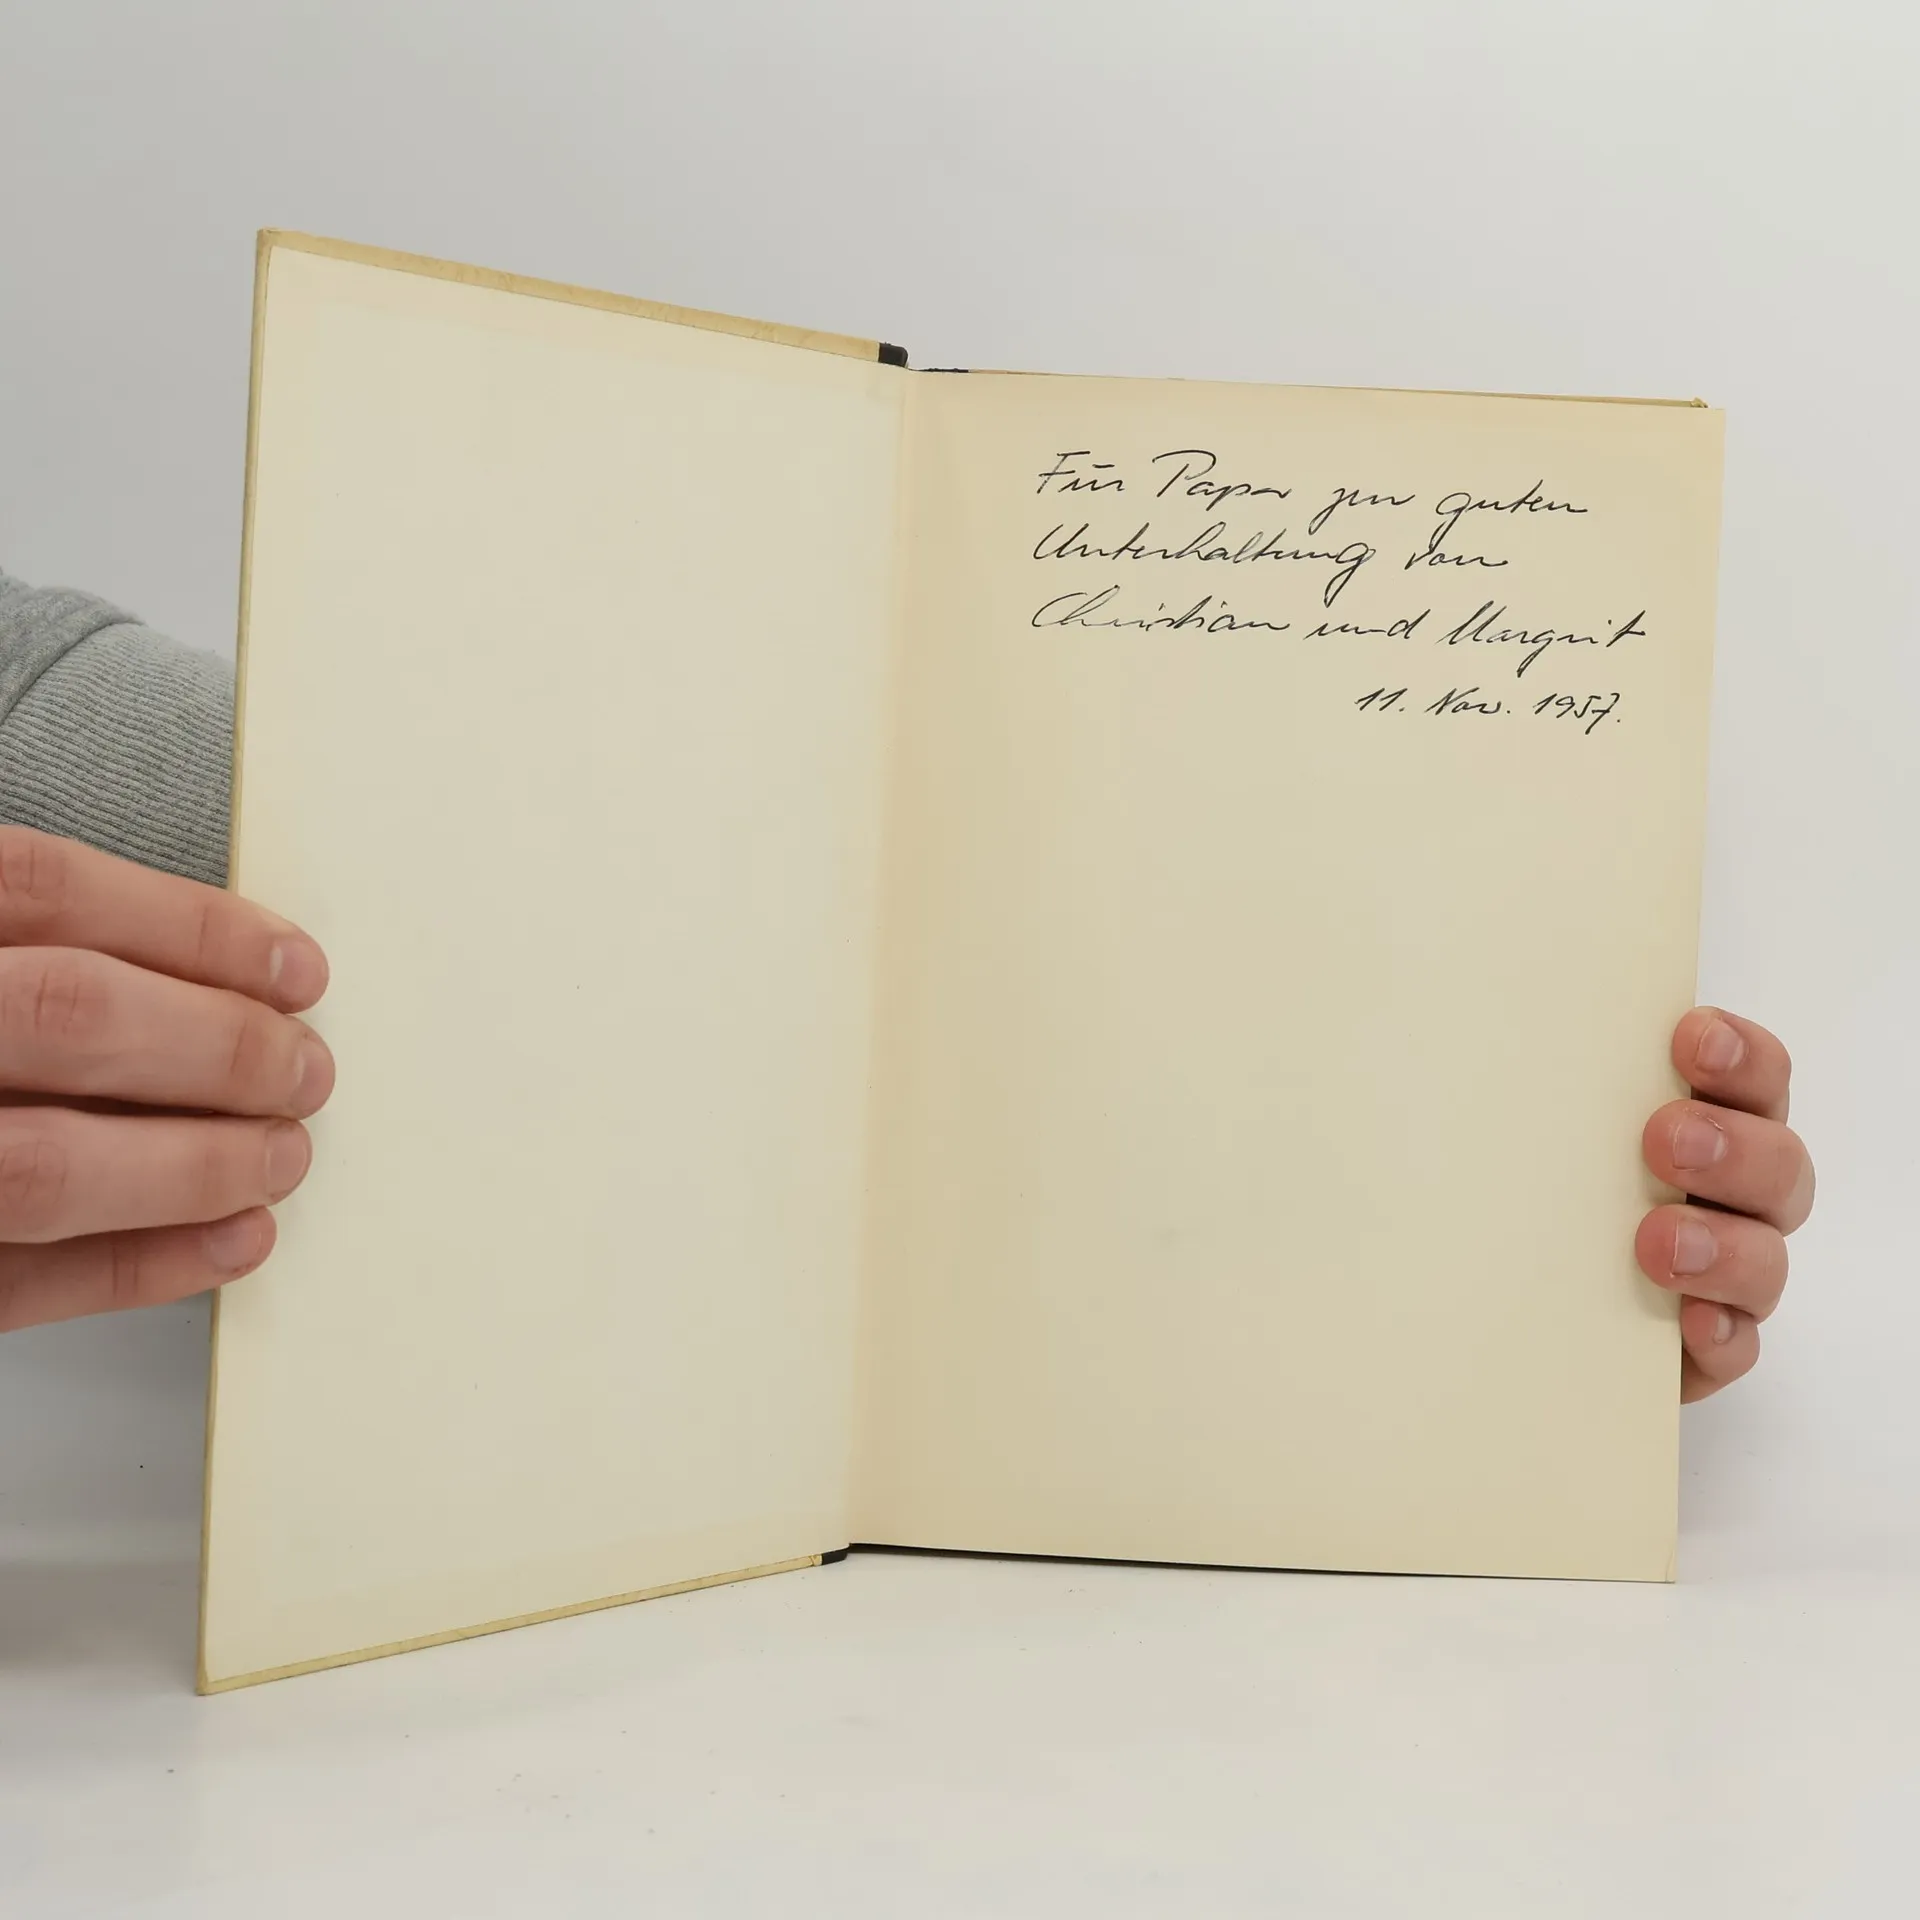 Für Papa zur guten
Unterhaltung von
Christian und Margrit
11. Nov. 1957.